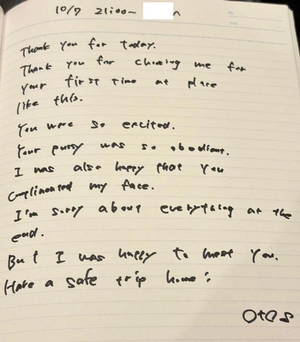 10/7 21:00~
Thank you for today.
Thank you for choosing me for
your first time at place
like this.
You were so excited.
Your pussy was so obedient.
I was also happy that you
complimented my face.
I'm sorry about everything at the
end.
But I was happy to meet you.
Have a safe trip home :